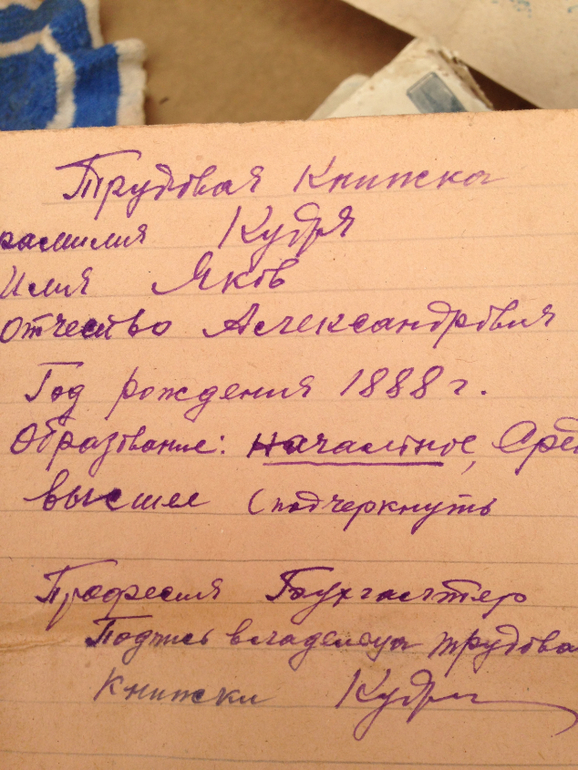 Трудовая Книжка
фамилия Кудря
Имя Яков
Отчество Александрович
Год рождения 1888 г.
Образование: начальное, Сред
высшее (подчеркнуть
Професия Бухгалтер
Подпись владельца трудова
книжки Кудря